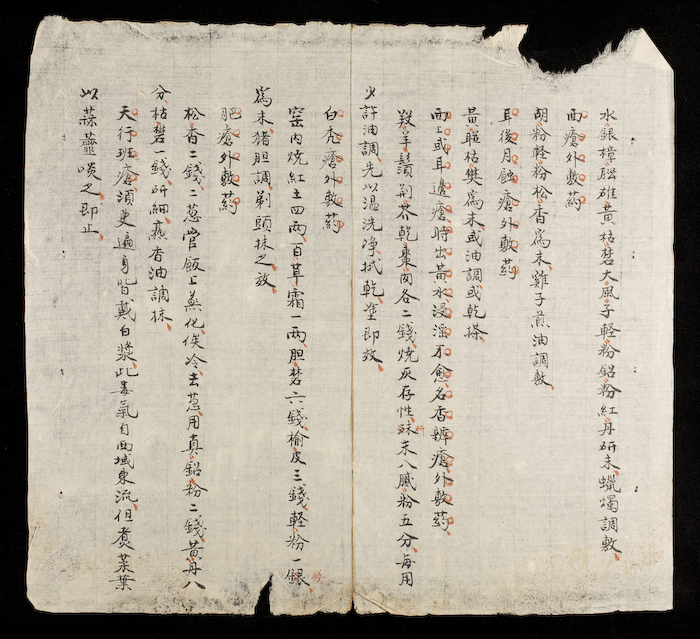 水銀樟腦雄黃枯礬大風子軽粉鉛粉紅丹研末蠟燭調敷
面瘡外敷葯
胡粉軽粉松香為末雞子煎油調敷
耳後月蝕瘡外敷葯
黃䏈枯樊為末或油調或乾搽
面上或耳邊瘡時出黃水浸淫不愈名香瓣瘡外敷葯
羖羊鬚荊芥乾棗肉各二錢燒灰存性研末入膩粉五分每用
少許油調先以温洗浄拭乾塗即効
白禿瘡外敷葯
窑内燒紅土四兩百草霜一兩胆礬六錢榆皮三錢軽粉一錢
為末猪胆調剃頭抹之效
肥瘡外敷葯
松香二錢二葱管飯上蒸化俟冷去葱用真鉛粉二錢黃丹八
分枯礬一錢研細熬香油調抹
天行班瘡須臾遍身皆戴白漿此毒氣自西域東流但煮葵葉
以蒜虀啖之即止